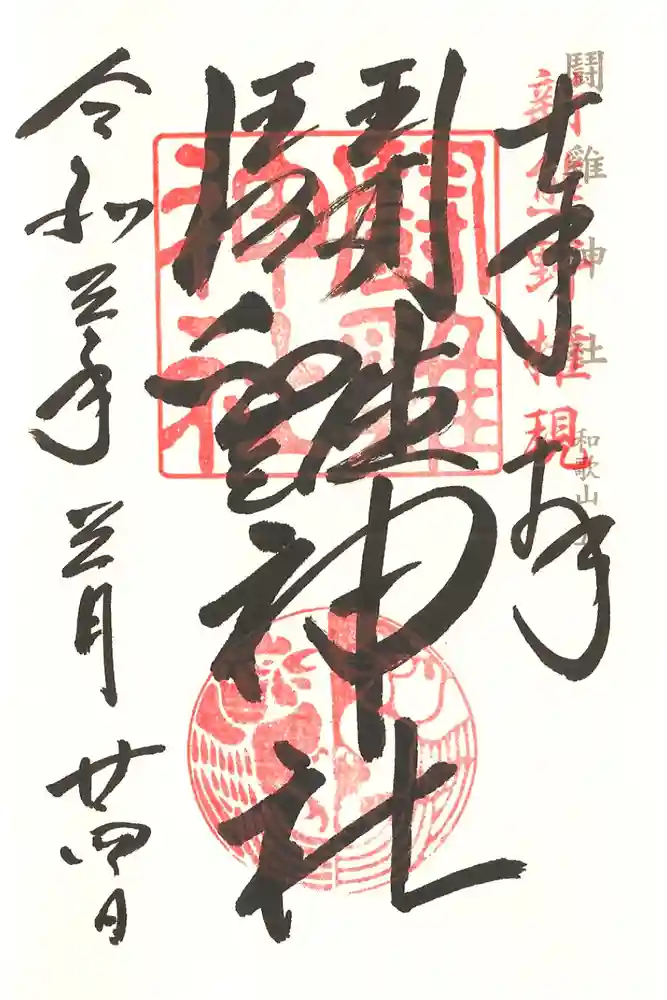 鬪雞神社 和歌山
新熊野權現
奉拝
鬪雞神社
鬪雞
神社
令和三年三月廿四日